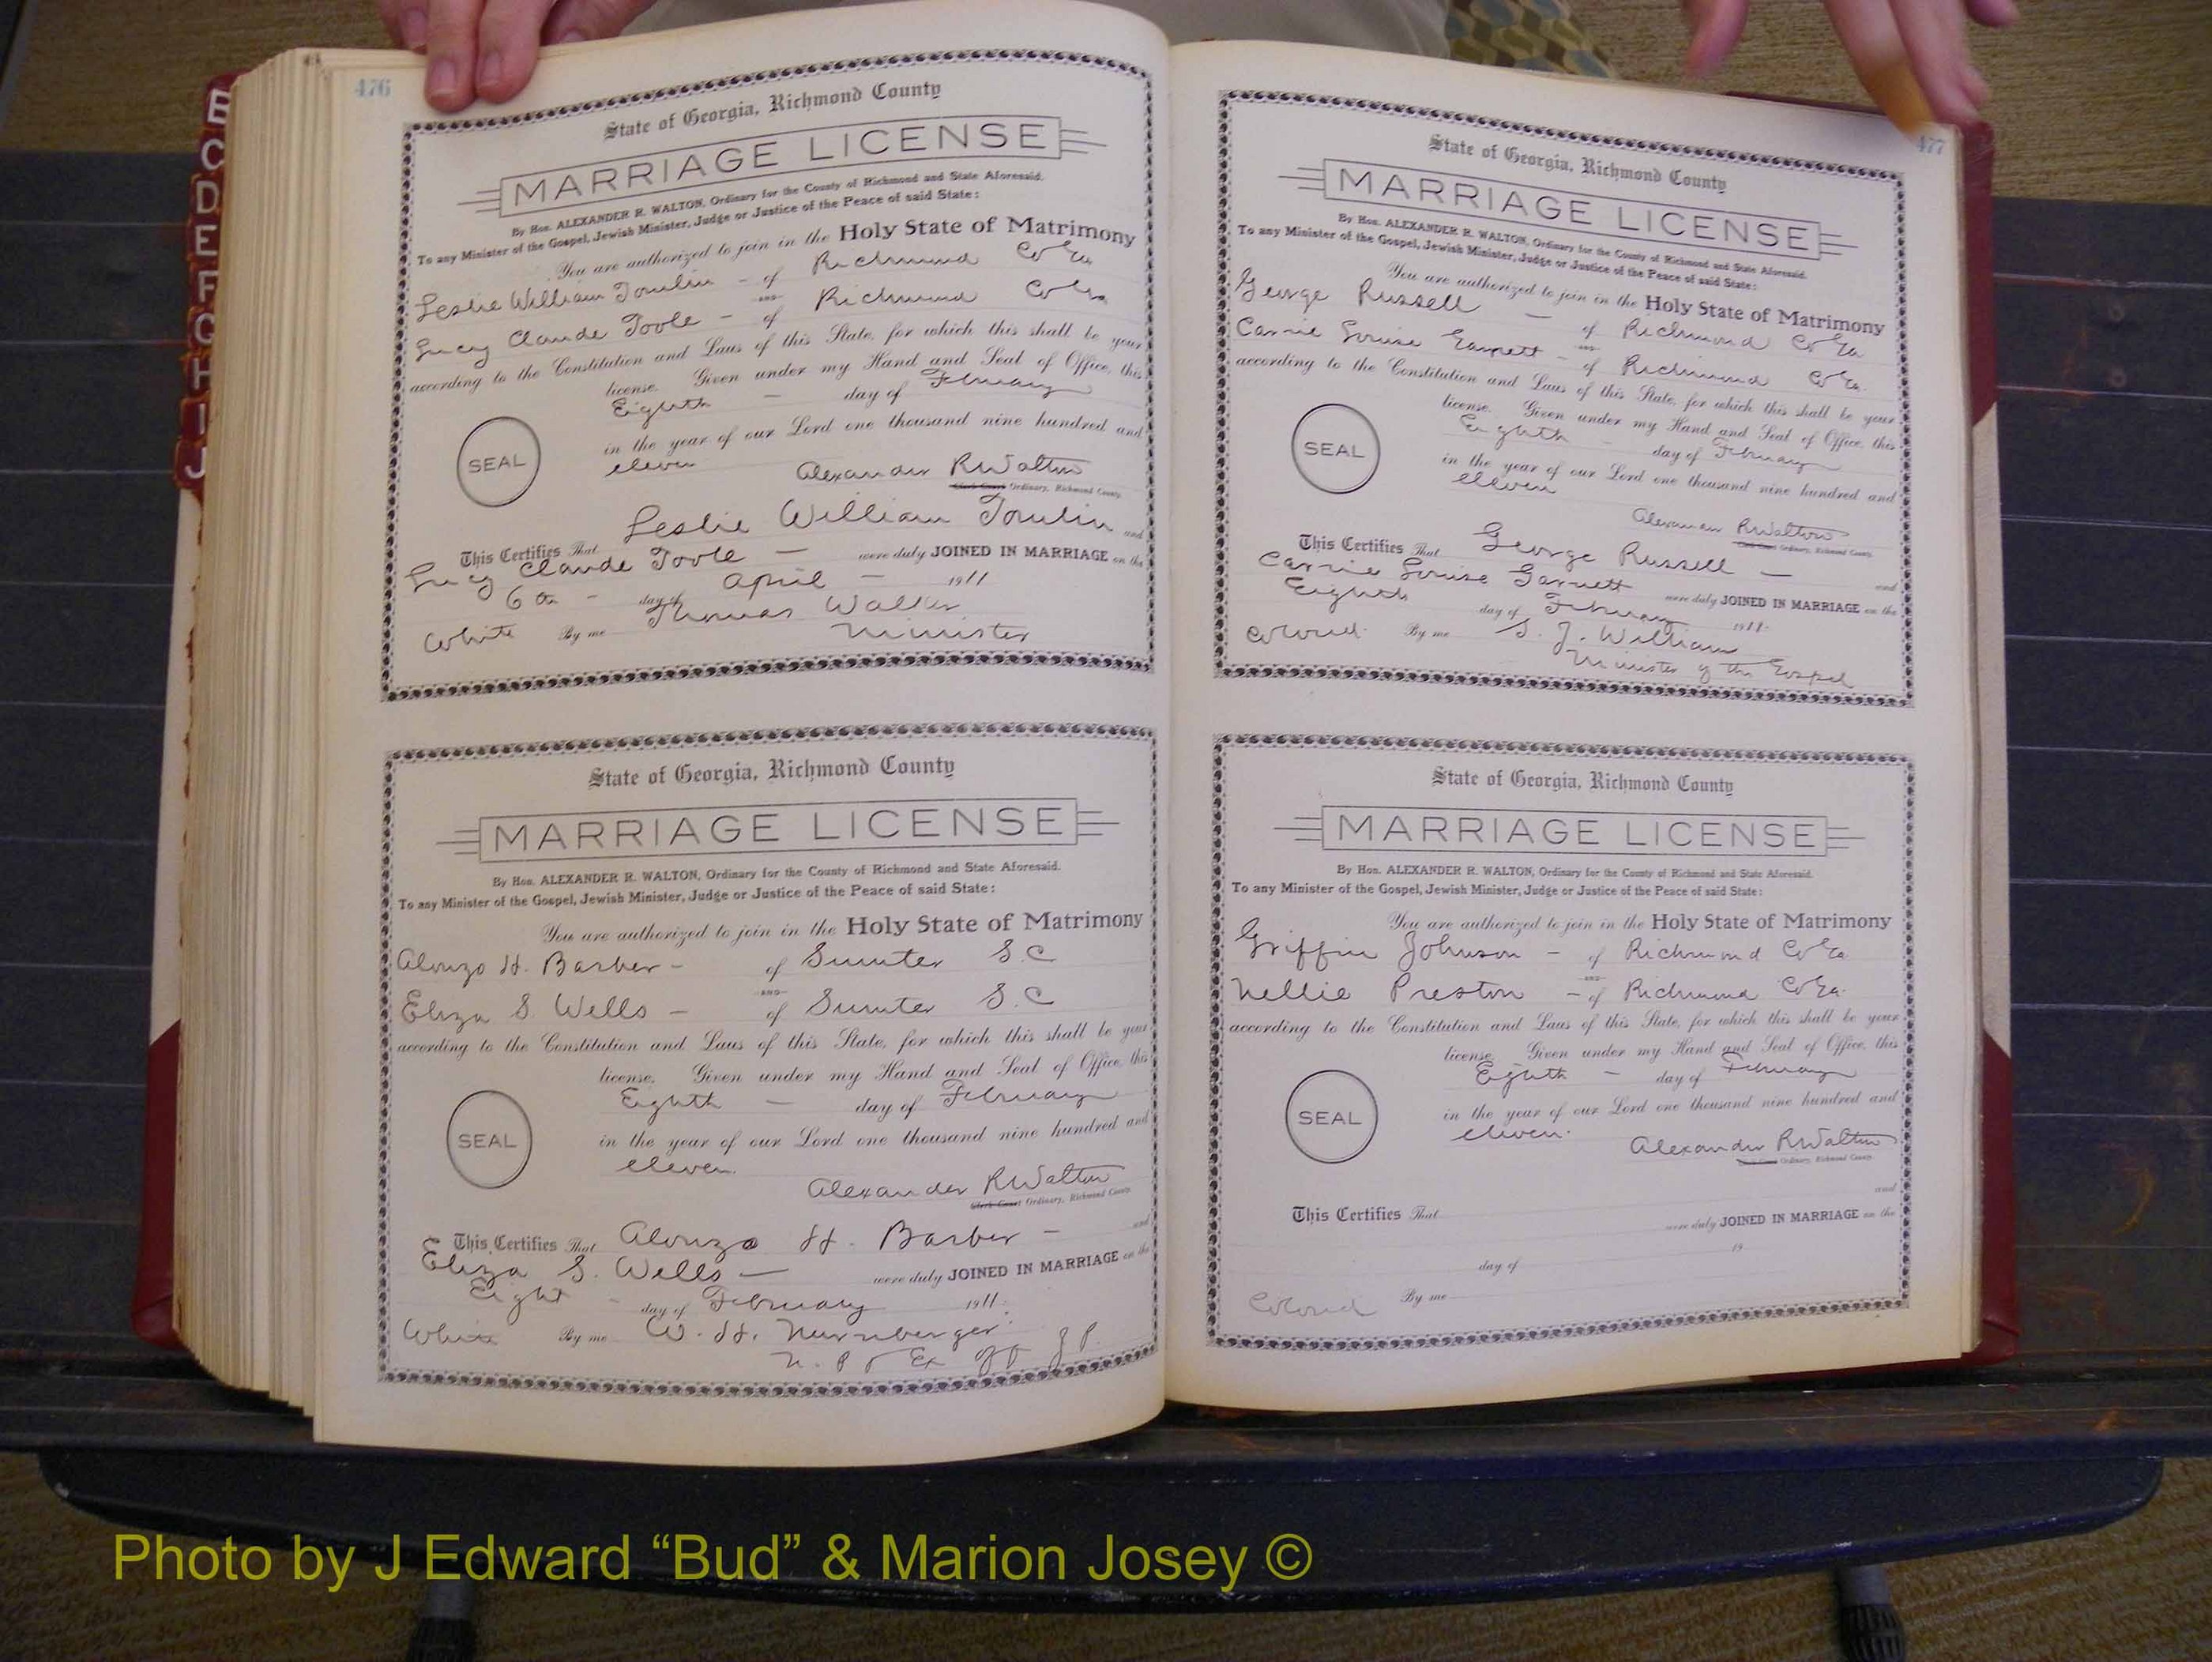 B
C
D
E
F
G
H
I
J
476
State of Georgia, Richmond County
MARRIAGE LICENSE
By Hon. ALEXANDER R. WALTON, Ordinary for the County of Richmond and State Aforesaid.
To any Minister of the Gospel, Jewish Minister, Judge or Justice of the Peace of said State:
You are authorized to join in the Holy State of Matrimony
Leslie William Tomlin - of Richmond Co Ga
AND
Lucy Claude Toole - of Richmond Co Ga
according to the Constitution and Laws of this State, for which this shall be your
license. Given under my Hand and Seal of Office, this
Eighth - day of February
in the year of our Lord one thousand nine hundred and
eleven
SEAL
Alexander R Walton
Clerk Court Ordinary, Richmond County.
This Certifies That Leslie William Tomlin and
Lucy Claude Toole - were duly JOINED IN MARRIAGE on the
6th - day of April - 1911
White By me Thomas Walker
Minister
State of Georgia, Richmond County
MARRIAGE LICENSE
By Hon. ALEXANDER R. WALTON, Ordinary for the County of Richmond and State Aforesaid.
To any Minister of the Gospel, Jewish Minister, Judge or Justice of the Peace of said State:
You are authorized to join in the Holy State of Matrimony
Alonzo H. Barber - of Sumter S.C
AND
Eliza S. Wells - of Sumter S.C
according to the Constitution and Laws of this State, for which this shall be your
license. Given under my Hand and Seal of Office, this
Eighth - day of February
in the year of our Lord one thousand nine hundred and
eleven.
SEAL
Alexander R Walton
Clerk Court Ordinary, Richmond County.
This Certifies That Alonzo H. Barber - and
Eliza S. Wells - were duly JOINED IN MARRIAGE on the
Eight - day of February 1911.
White By me W. H. Nurnberger.
N. P & Ex off J P.
477
State of Georgia, Richmond County
MARRIAGE LICENSE
By Hon. ALEXANDER R. WALTON, Ordinary for the County of Richmond and State Aforesaid.
To any Minister of the Gospel, Jewish Minister, Judge or Justice of the Peace of said State:
You are authorized to join in the Holy State of Matrimony
George Russell - of Richmond Co Ga
AND
Carrie Louise Garnett - of Richmond Co Ga.
according to the Constitution and Laws of this State, for which this shall be your
license. Given under my Hand and Seal of Office, this
Eighth - day of February
in the year of our Lord one thousand nine hundred and
eleven
SEAL
Alexander R Walton
Clerk Court Ordinary, Richmond County.
This Certifies That George Russell - and
Carrie Louise Garnett were duly JOINED IN MARRIAGE on the
Eighth day of February 1911.
Colored. By me S. J. William
Minister of the Gospel
State of Georgia, Richmond County
MARRIAGE LICENSE
By Hon. ALEXANDER R. WALTON, Ordinary for the County of Richmond and State Aforesaid.
To any Minister of the Gospel, Jewish Minister, Judge or Justice of the Peace of said State:
You are authorized to join in the Holy State of Matrimony
Griffin Johnson - of Richmond Co Ga
AND
Nellie Preston - of Richmond Co Ga.
according to the Constitution and Laws of this State, for which this shall be your
license. Given under my Hand and Seal of Office, this
Eighth - day of February
in the year of our Lord one thousand nine hundred and
eleven.
SEAL
Alexander R Walton
Clerk Court Ordinary, Richmond County.
This Certifies That and
were duly JOINED IN MARRIAGE on the
day of 19
Colored By me
Photo by J Edward “Bud” & Marion Josey ©